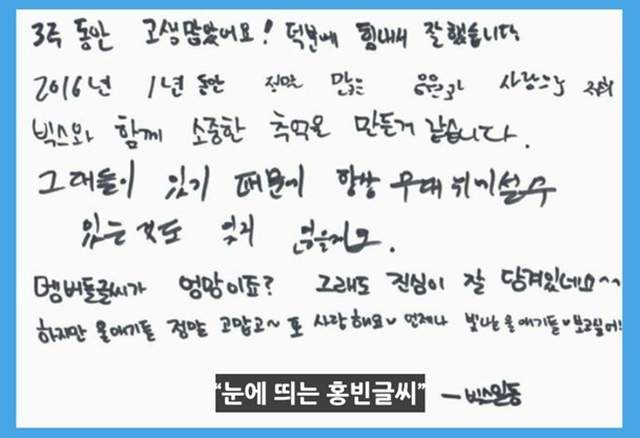 3주 동안 고생많았어요! 덕분에 힘내서 잘했습니다
2016년 1년 동안 정말 많은 응원과 사랑으로 저희
빅스와 함께 소중한 추억을 만든거 같습니다.
그대들이 있기 때문에 항상 무대 위에 설 수
있는 것도 잊지
멤버들글씨가 엉망이죠? 그래도 진심이 잘 담겨있네요~~
하지만 울애기들 정말 고맙고~ 또 사랑해요♥ 언제나 빛나는 울애기들♥보고싶어!
"눈에 띄는 홍빈글씨"
-빅스일동